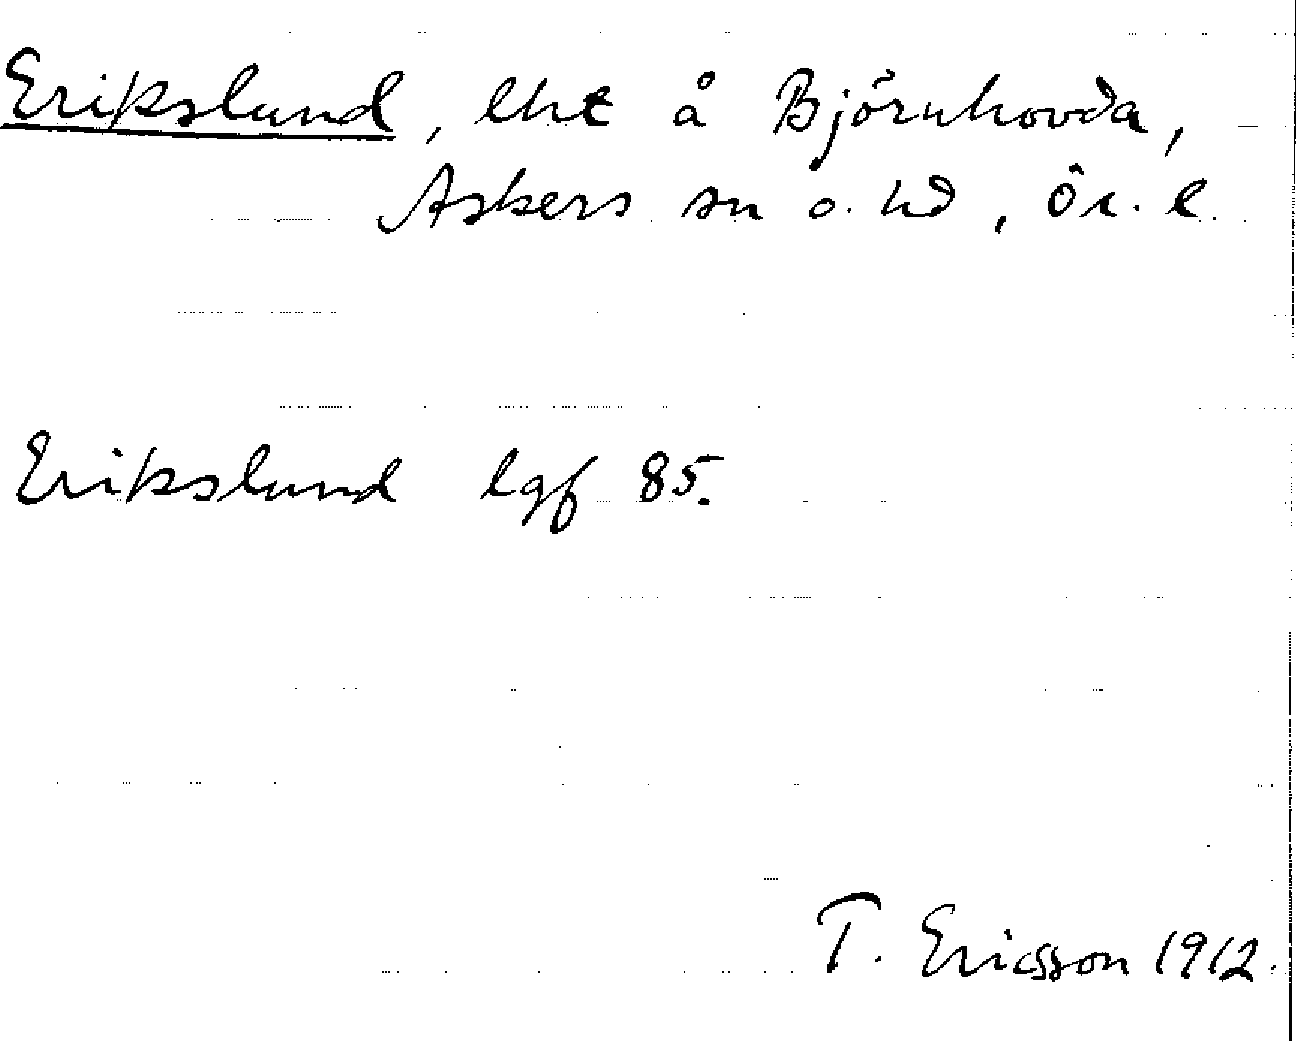 Erikslund, lht å Björnhovda,
Askers sn o. hd, Ör. l.
Erikslund lgf 85.
T. Ericsson 1912.